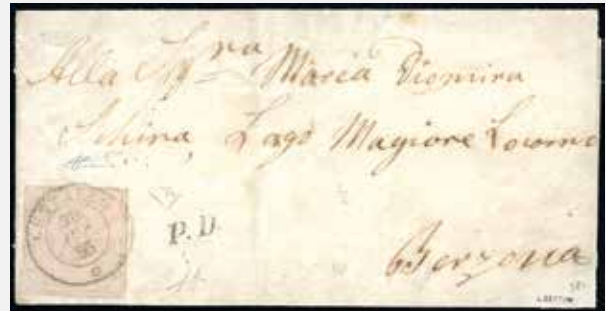 Alla Sig.ra Maria Diomira
Schira, Lago Magiore Locarno
P.D.
Berzona